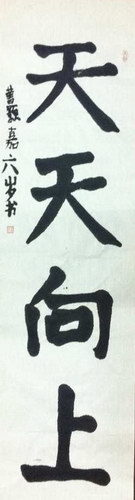 天天向上
嘉六岁书